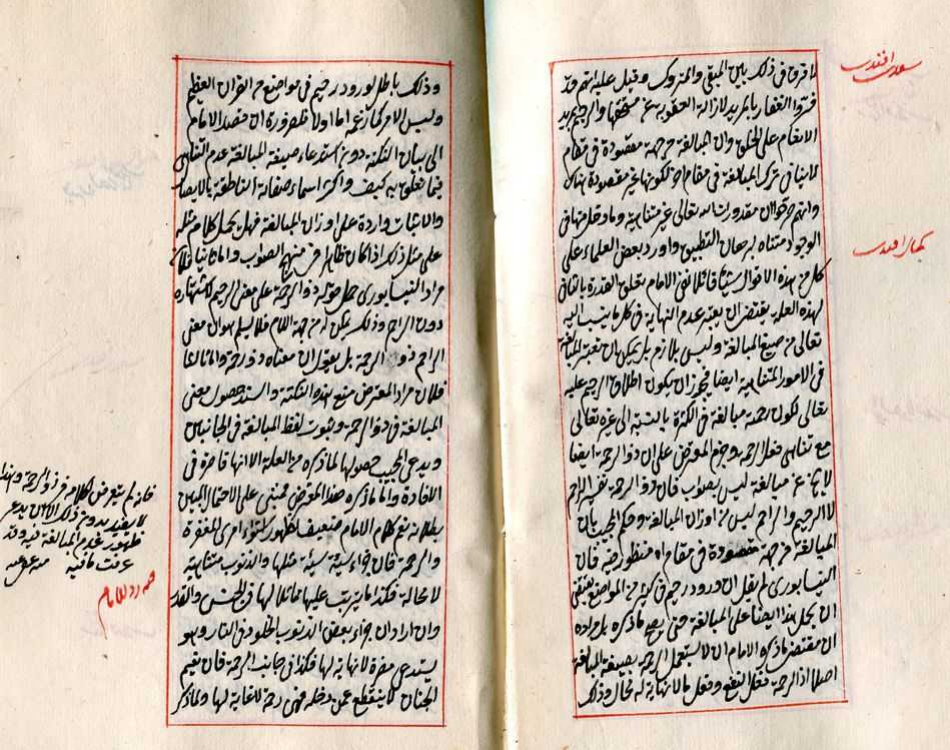 ما فرق في ذلك بين المبقي والمتروك وقيل عليه انهم قد
فرقوا الغفار بالمريد لازالة العقوبة عن مستحقها والرحيم بمريد
الانعام على الخلق وان المبالغة من جهة مقصودة في مقام
لا ينافي ترك المبالغة في مقام اخر لكونها غير مقصودة هناك
وانهم جوزوا ان مقدورات الله تعالى غير متناهية وما دخل منها في
الوجود متناه ببرهان التطبيق واورد بعض العلماء على
كل من هذه الاقوال شيئا قائلا نفي الامام تعلق القدرة بالتناهي
لهذه العلة يقتضي ان يعتبر عدم النهاية في كل ما ينسب اليه
تعالى من صيغ المبالغة وليس بلازم بل يمكن ان تعتبر المبالغة
في الامور المتناهية ايضا فيجوز ان يكون اطلاق الرحيم عليه
تعالى لكون رحمته مبالغة في الكثرة بالنسبة الى غيره تعالى
مع تناهي فعل الرحمة وجزم المعترض على ان ذو الرحمة ايضا
لا يخ عن مبالغة ليس بصواب فان ذو الرحمة تفسير الراحم
لا الرحيم والراحم ليس من اوزان المبالغة وحكم المجيب بان
المبالغة من جهة مقصودة في مقام اه منظور فيه فان
النيسابوري لم يقل ان ورود رحيم في كثير من المواضع يقتضي
ان يحمل هذا ايضا على المبالغة حتى يصح ما ذكره بل مراده
ان مقتضى ما ذكره الامام ان لا يستعمل الرحمة بصيغة المبالغة
اصلا اذ الرحمة فعل النفع وفعل ما لا نهاية له محال وذلك
سعدي افندي
وذلك باطل لورود رحيم في مواضع من القران العظيم
وليس الامر كما زعمه اما اولا فلضرورة ان مقصد الامام
الى بيان النكتة دون استدعاء صيغة المبالغة عدم التناهي
فيما تعلق به كيف واكثر اسماء صفاته الناطقة بالايصال
والاثبات واردة على اوزان المبالغة فهل يحمل كلام مثله
على مثل ذلك اذا كان ظاهرا في منهج الصواب واما ثانيا فلان
مراد النيسابوري حمل قوله ذو الرحمة على معنى الرحيم لاشتهاره
دون الراحم وذلك يمكن له من جهة اللام فلا يسلم هو ان معنى
الراحم ذو الرحمة بل يقول ان معناه ذو رحمة واما ثالثا
فلان مراد المعترض منع هذه النكتة والسند حصول معنى
المبالغة في ذو الرحمة وثبوت لفظ المبالغة في الجانبين
ويدعي المجيب حصولها لما ذكره من العلة الا انها قاصرة في
الافادة واما ما ذكره هذا المعترض فمبني على الاحتمال المبين
بطلانه نعم كلام الامام ضعيف لظهور استواء امري المغفرة
والرحمة فان جزاء سيئة سيئة مثلها والذنوب متناهية
لا محالة فكذا ما يترتب عليها مماثلا لها في الجنس والقدر
وان اراد ان جزاء بعض الذنوب الخلود في النار وهو
يستدعي مضرة لا نهاية لها فكذا في جانب الرحمة فان نعيم
الجنان لا ينقطع عمن دخله فهي رحمة لا غاية لها ولما ذكر
فانه لم يتعرض لكلامه في ذو الرحمة وهذا
لا يفيد بدون ذلك الا ان يدعي
ظهور عدم المبالغة فيه وقد
عرفت ما فيه منه عفي عنه